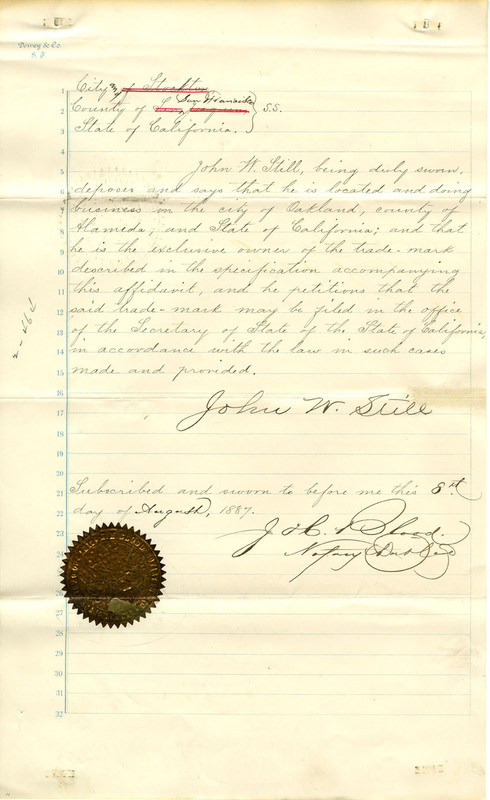 Dewey & Co.
S. F.
City of Stockton
County of San Francisco } S.S.
State of California.
John W. Still, being duly sworn,
deposes and says that he is located and doing
business in the city of Oakland, county of
Alameda, and State of California; and that
he is the exclusive owner of the trade-mark
described in the specification accompanying
this affidavit, and he petitions that the
said trade-mark may be filed in the office
of the Secretary of State of the State of California,
in accordance with the law in such cases
made and provided.
John W. Still
Subscribed and sworn to before me this 8th
day of August, 1887.
J. H. Blood.
Notary Public
1
2
3
4
5
6
7
8
9
10
11
12
13
14
15
16
17
18
19
20
21
22
23
24
26
27
28
29
30
31
32
2-464